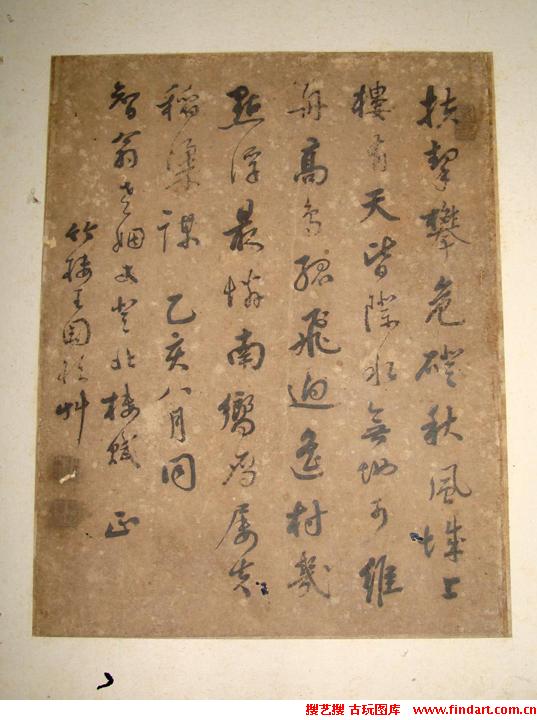 扶挈攀危磴秋風城上
樓有天皆際水無地可維
舟高鳥孤飛迥遙村幾
點浮最憐南鴈為
稻粱謀 乙亥八月同
智翁老姻丈登北樓賦 正
竹樓王國 艸
搜艺搜 古玩图库 www.findart.com.cn